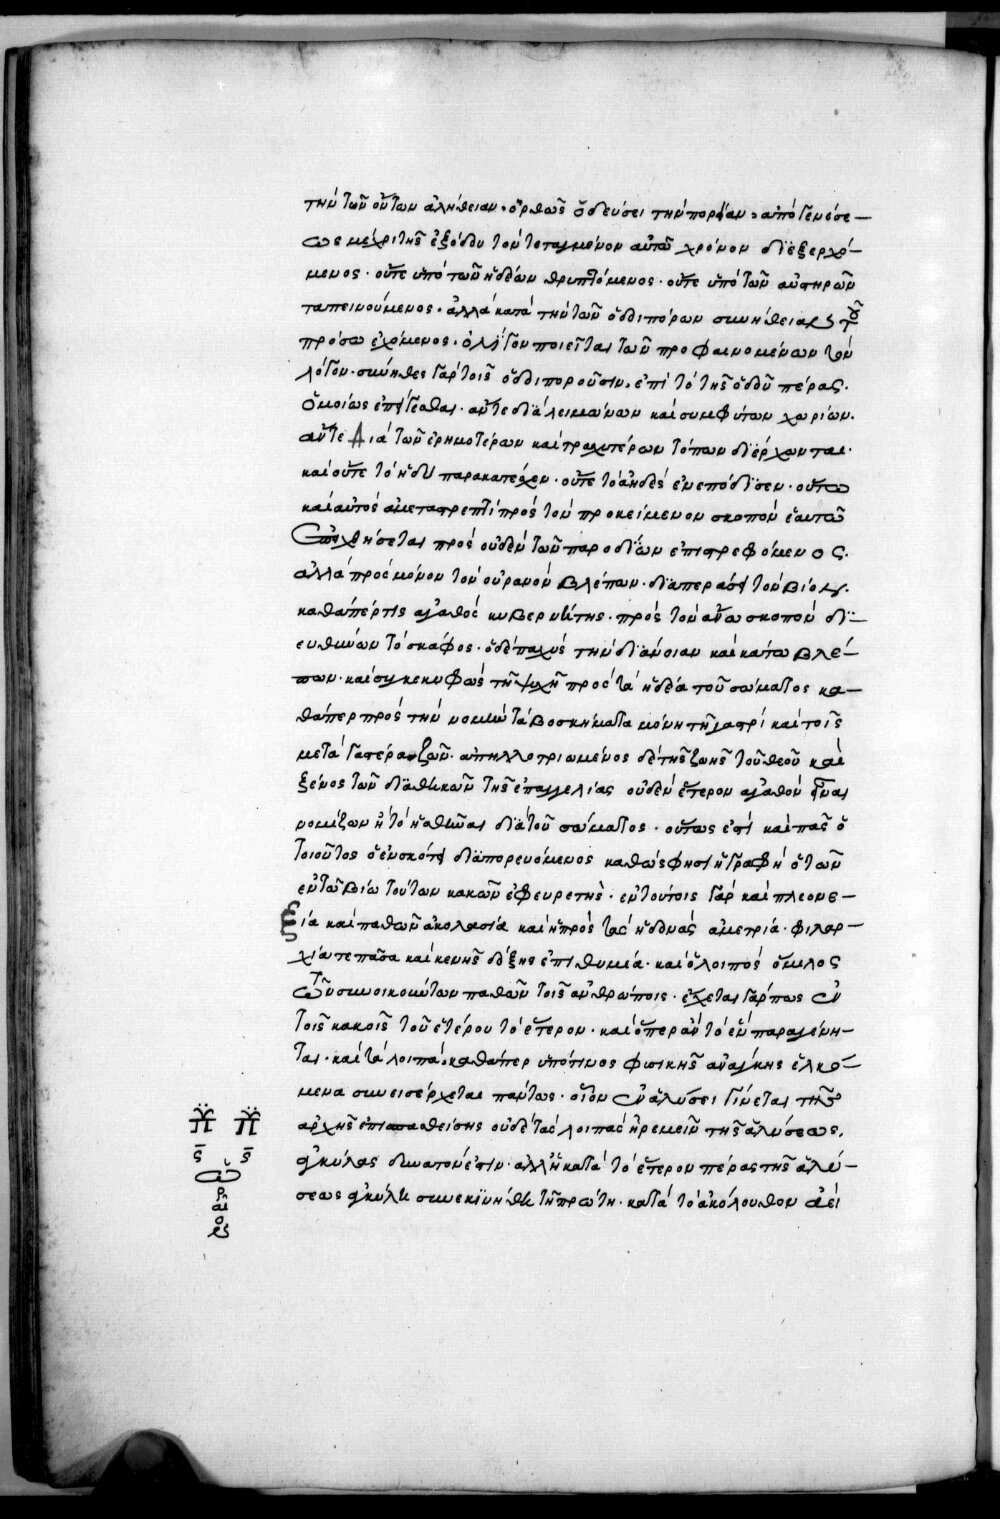 τὴν τῶν ὄντων ἀλήθειαν· ὀρθῶς ὁδεύσει τὴν πορείαν· ἀπὸ γενέσε-
ως μέχρι τῆς ἐξόδου τὸν τεταγμένον αὐτῶ χρόνον διεξερχό-
μενος· οὔτε ὑπὸ τῶν ἡδέων θρυπτόμενος· οὔτε ὑπὸ τῶν αὐστηρῶν
ταπεινούμενος· ἀλλὰ κατὰ τὴν τῶν ὁδιπόρων συνήθειαν τοῦ
πρόσω ἐχόμενος· ὀλίγον ποιεῖται τῶν προφαινομένων τὸν
λόγον· σύνηθες γὰρ τοῖς ὁδιποροῦσιν· ἐπὶ τὸ τῆς ὁδοῦ πέρας·
ὁμοίως ἐπείγεσθαι· αὔτε διὰ λειμώνων καὶ συμφύτων χωρίων·
αὔτε διὰ τῶν ἐρημοτέρων καὶ τραχυτέρων τόπων διέρχωνται·
καὶ οὔτε τὸ ἡδὺ παρακατέσχεν· οὔτε τὸ ἀηδὲς ἐνεπόδισεν· οὕτω
καὶ αὐτὸς ἀμεταστρεπτὶ πρὸς τὸν προκείμενον σκοπὸν ἑαυτῶ
ἐποχθήσεται πρὸς οὐδὲν τῶν παροδίων ἐπιστρεφόμενος·
ἀλλὰ πρὸς μόνον τὸν οὐρανὸν βλέπων· διαπεράσει τὸν βίον·
καθάπέρ τις ἀγαθὸς κυβερνήτης· πρὸς τὸν ἄνω σκοπὸν δι-
ευθύνων τὸ σκάφος· ὁ δὲ παχὺς τὴν διάνοιαν καὶ κάτω βλέ-
πων· καὶ συγκεκυφὼς τῆ ψυχῆ πρὸς τὰ ἡδέα τοῦ σώματος κα-
θάπερ πρὸς τὴν νομὴν τὰ βοσκήματα μόνη τῆ γαστρὶ καὶ τοῖς
μετὰ γαστέρα ζῶν· ἀπηλλοτριωμένος δὲ τῆς ζωῆς τοῦ θεοῦ καὶ
ξένος τῶν διαθηκῶν τῆς ἐπαγγελίας οὐδὲν ἕτερον ἀγαθὸν εἶναι
νομίζων ἢ τὸ ἡσθῆναι διὰ τοῦ σώματος· οὗτος ἐστὶ καὶ πᾶς ὁ
τοιοῦτος ὁ ἐν σκότει διαπορευόμενος καθώς φησιν ἡ γραφὴ ὁ τῶν
ἐν τῶ βίω τούτων κακῶν ἐφευρετής· ἐν τούτοις γὰρ καὶ πλεονε-
ξία καὶ παθῶν ἀκολασία καὶ ἡ πρὸς τὰς ἡδονὰς ἀμετρία· φιλαρ-
χία τε πᾶσα καὶ κενῆς δόξης ἐπιθυμία· καὶ ὁ λοιπὸς ὅμιλος
τῶν συνοικούντων παθῶν τοῖς ἀνθρώποις· ἔχεται γάρ πως ἐν
τοῖς κακοῖς τοῦ ἑτέρου τὸ ἕτερον· καὶ ὅπερ ἂν τὸ ἓν παραγένη-
ται· καὶ τὰ λοιπὰ καθάπερ ὑπό τινος φυσικῆς ἀνάγκης ἑλκό-
μενα συνεισέρχεται πάντως· οἷον ἐν ἁλύσει γίνεται τῆς
ἀρχῆς ἐπισπασθείσης οὐδὲ τὰς λοιπὰς ἠρεμεῖν τῆς ἁλύσεως·
ἀγκύλας δυνατόν ἐστιν· ἀλλ' ἡ κατὰ τὸ ἕτερον πέρας τῆς ἁλύ-
σεως ἀγκύλη συνεκινήθη τῆ πρώτη· κατὰ τὸ ἀκόλουθον ἀεὶ